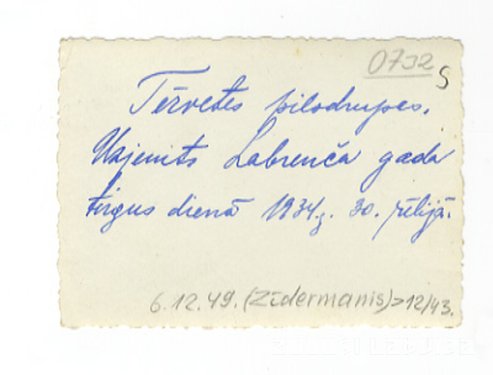 0732
S
Tērvetes pilsdrupas.
Uzņemts Labrenča gada
tirgus dienā 1934.g. 30. jūlijā.
6.12.49. (Zīdermanis) > 12/43.